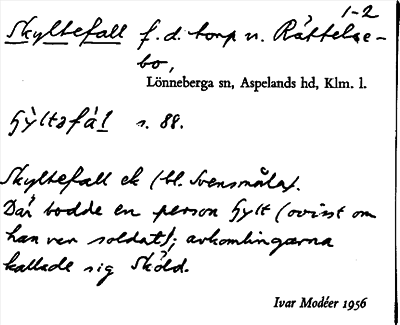 1-2
Skyltefall f.d. torp u. Råttele-
bo,
Lönneberga sn, Aspelands hd, Klm. l.
s. 88.
Skyltefall ek (bl. Svensmåla).
Där bodde en person Gylt (ovisst om
han var soldat); avkomlingarna
kallade sig Sköld.
Ivar Modéer 1956